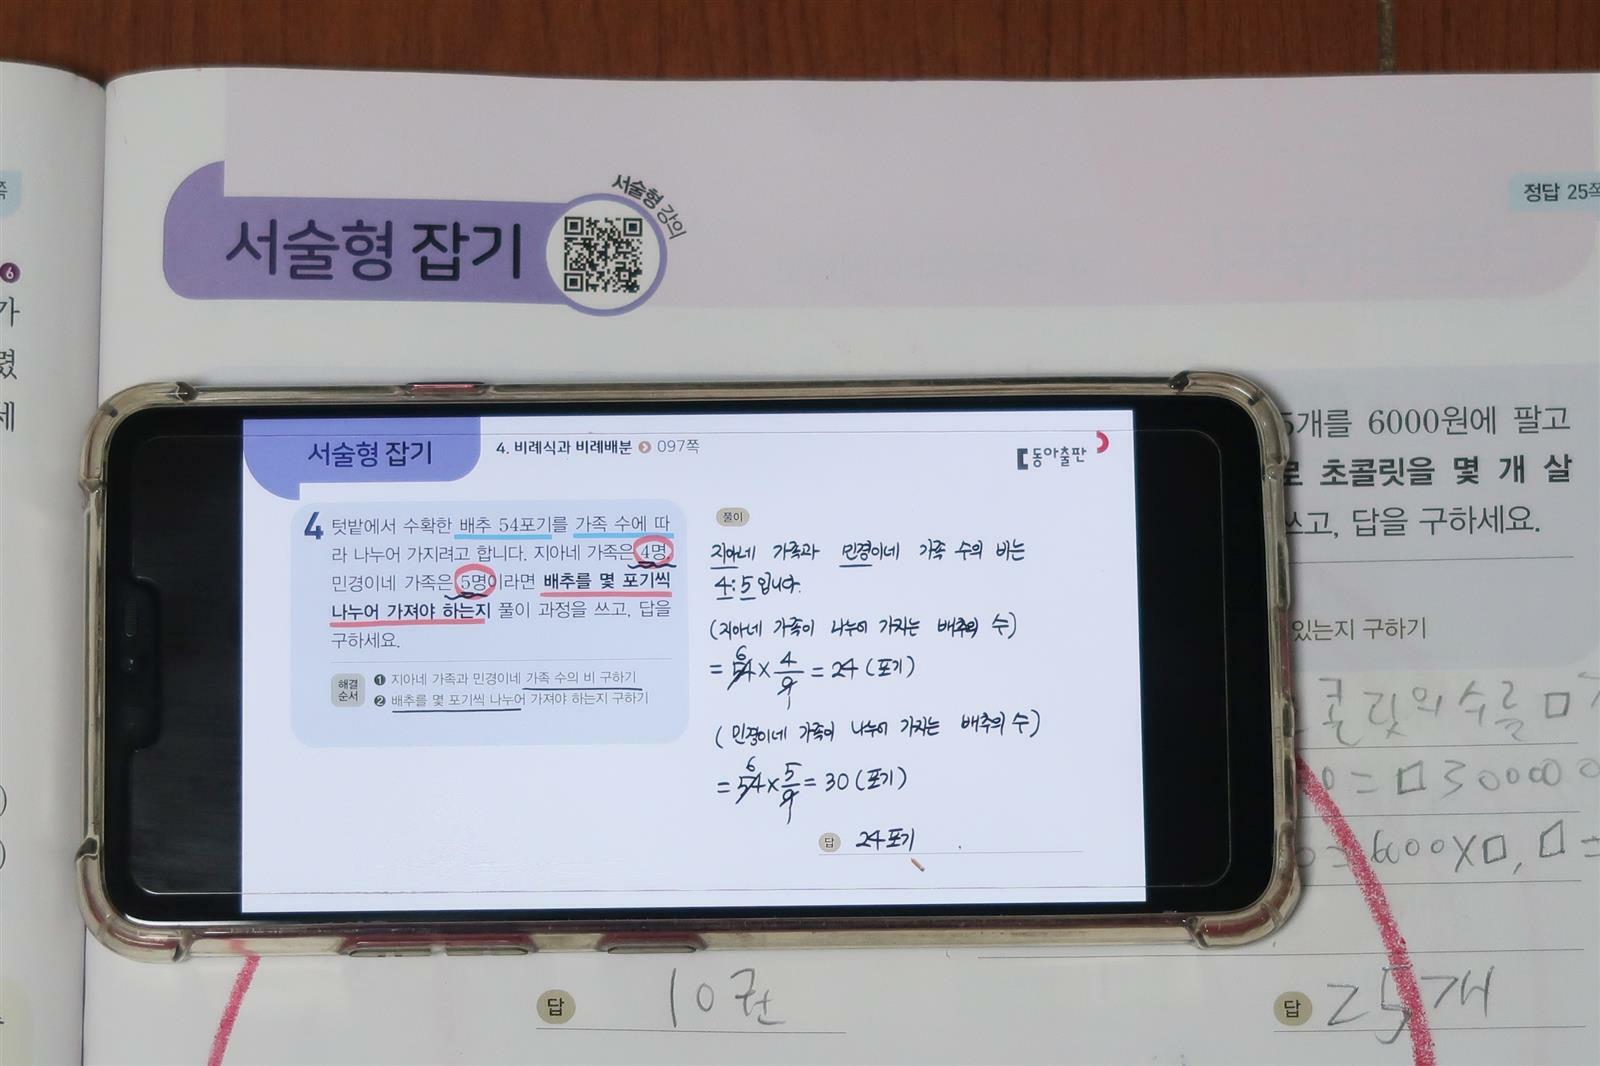 쪽
6
가
렸
세
서술형 잡기
서술형 강의
정답 25쪽
5개를 6000원에 팔고
로 초콜릿을 몇 개 살
쓰고, 답을 구하세요.
있는지 구하기
콜릿의 수를 □
답 10권
답 25개
서술형 잡기
4. 비례식과 비례배분 097쪽
동아출판
4 텃밭에서 수확한 배추 54포기를 가족 수에 따
라 나누어 가지려고 합니다. 지아네 가족은 4명,
민경이네 가족은 5명이라면 배추를 몇 포기씩
나누어 가져야 하는지 풀이 과정을 쓰고, 답을
구하세요.
해결
순서
❶ 지아네 가족과 민경이네 가족 수의 비 구하기
❷ 배추를 몇 포기씩 나누어 가져야 하는지 구하기
풀이
지아네 가족과 민경이네 가족 수의 비는
4:5입니다.
(지아네 가족이 나누어 가지는 배추의 수)
6
= 54 × 4/9 = 24 (포기)
(민경이네 가족이 나누어 가지는 배추의 수)
6
= 54 × 5/9 = 30 (포기)
답 24포기